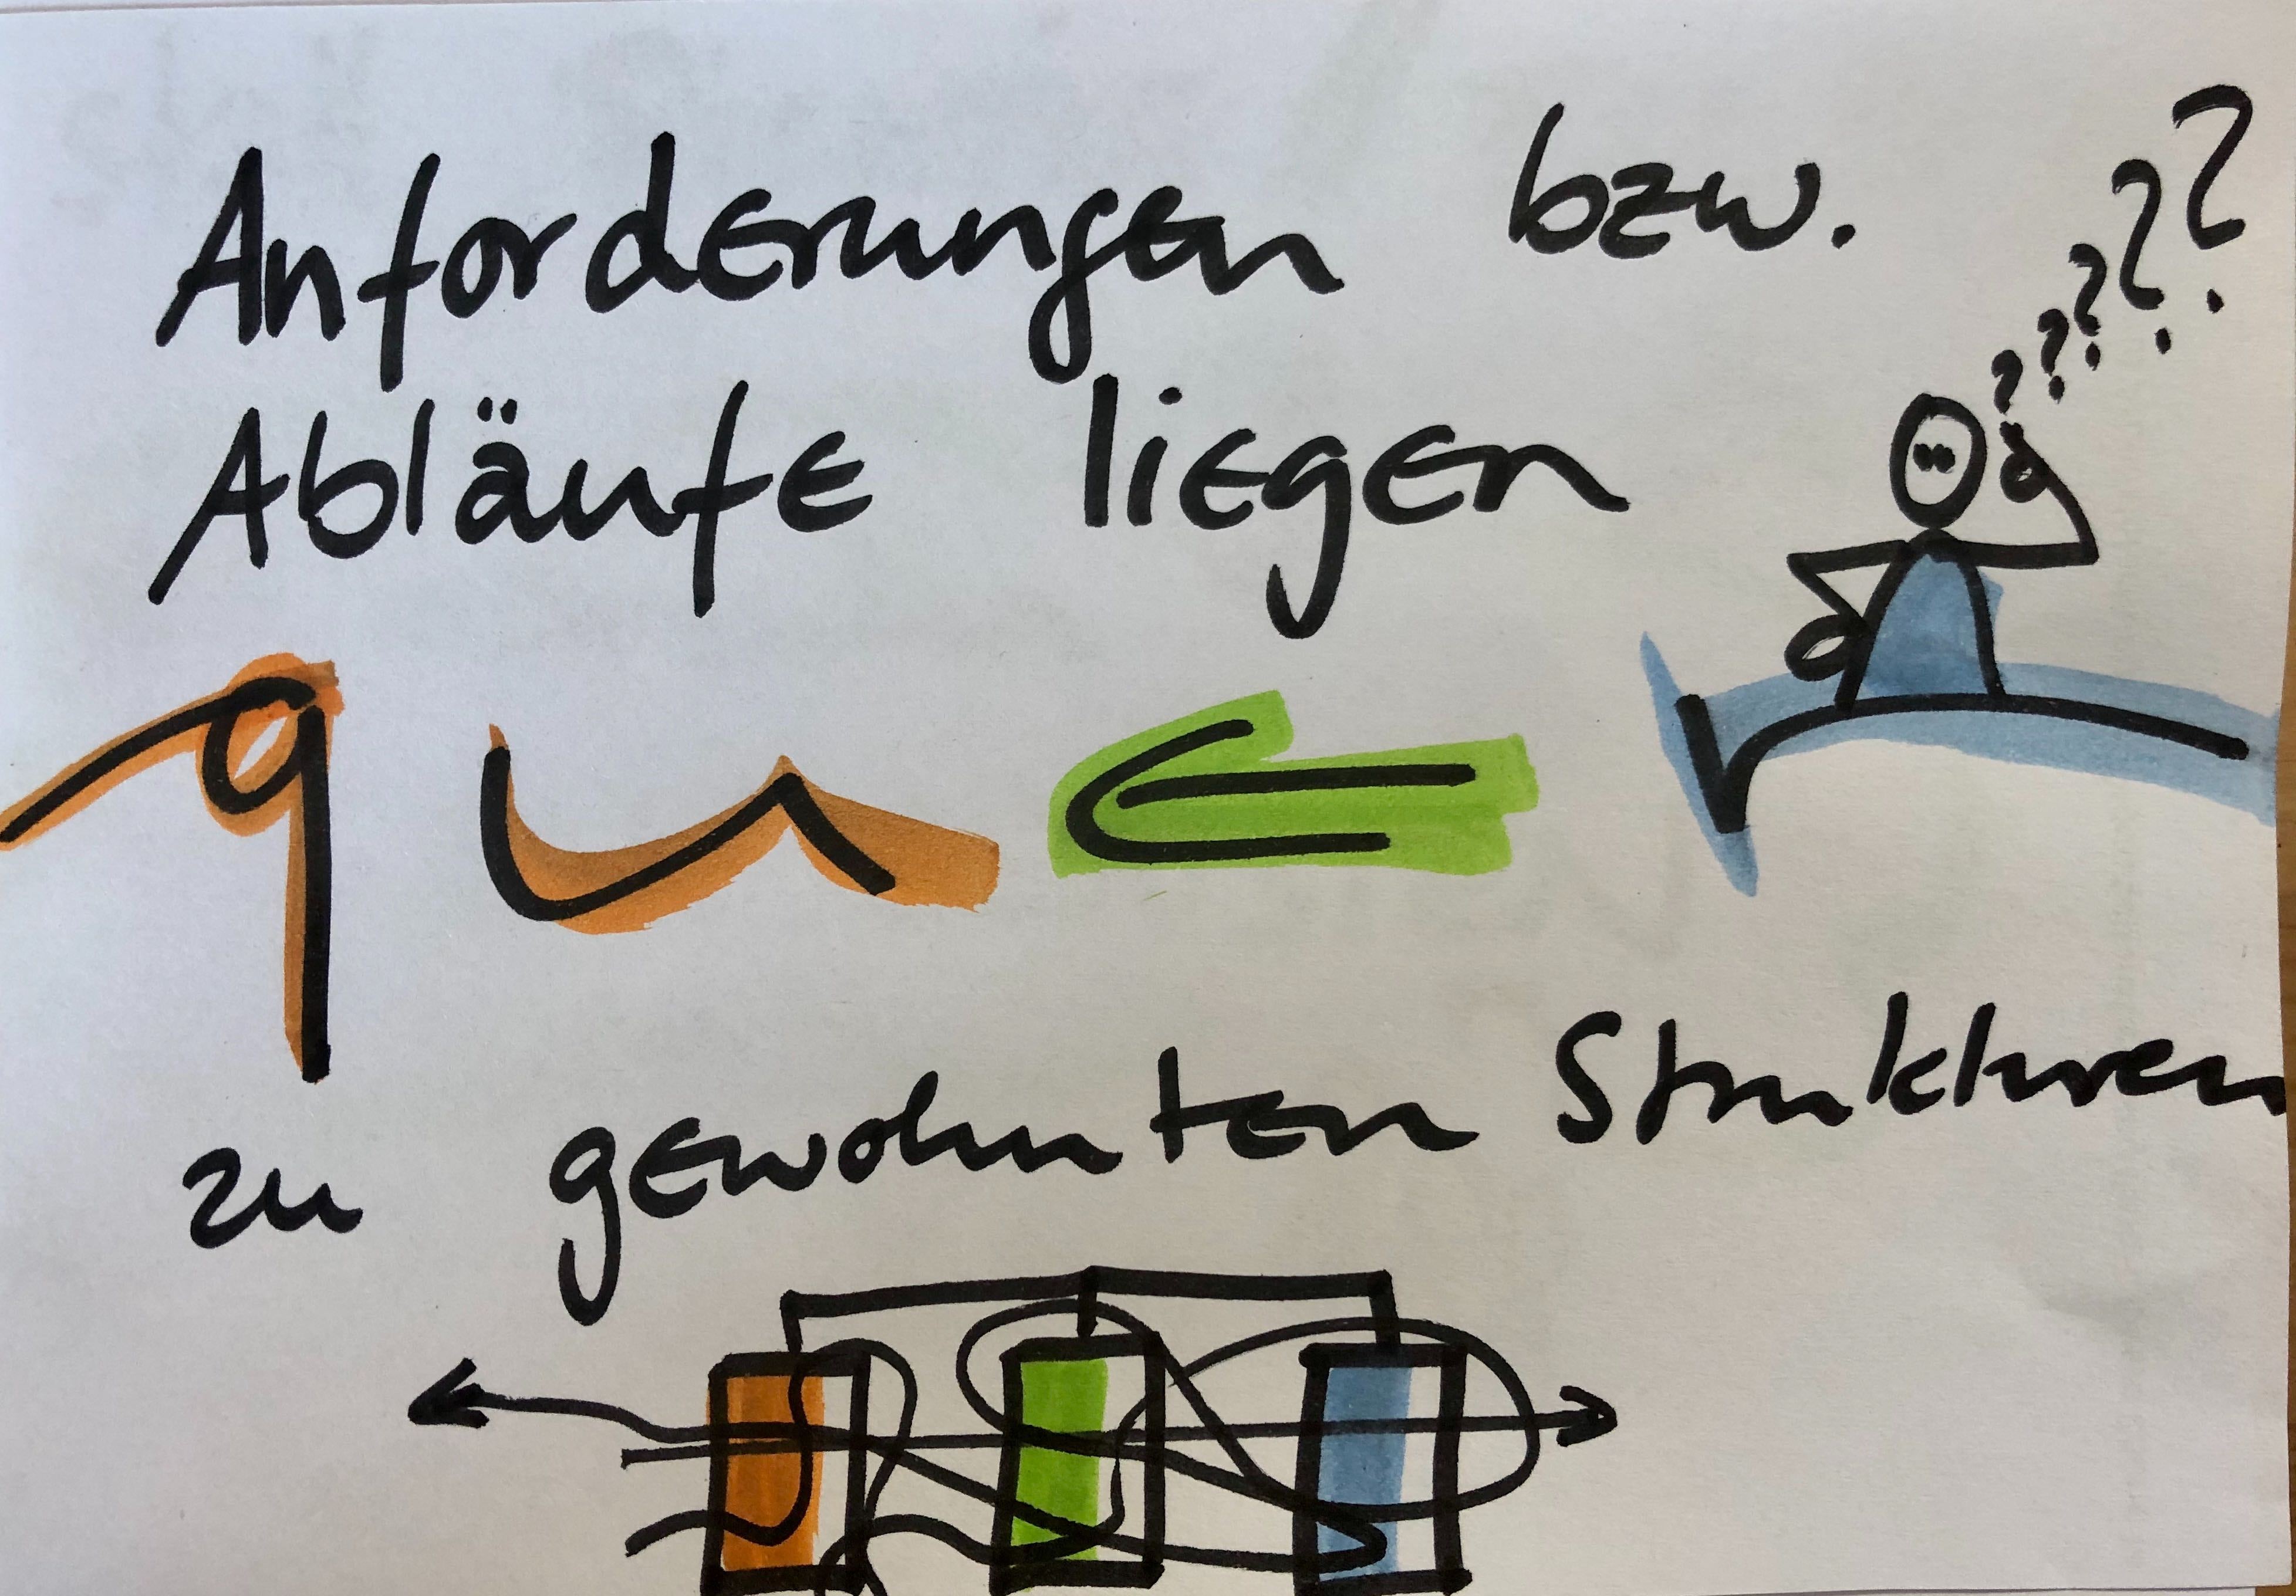 Anforderungen bzw.
Abläufe liegen
quer
zu gewohnten Strukturen
? ? ? ? ?